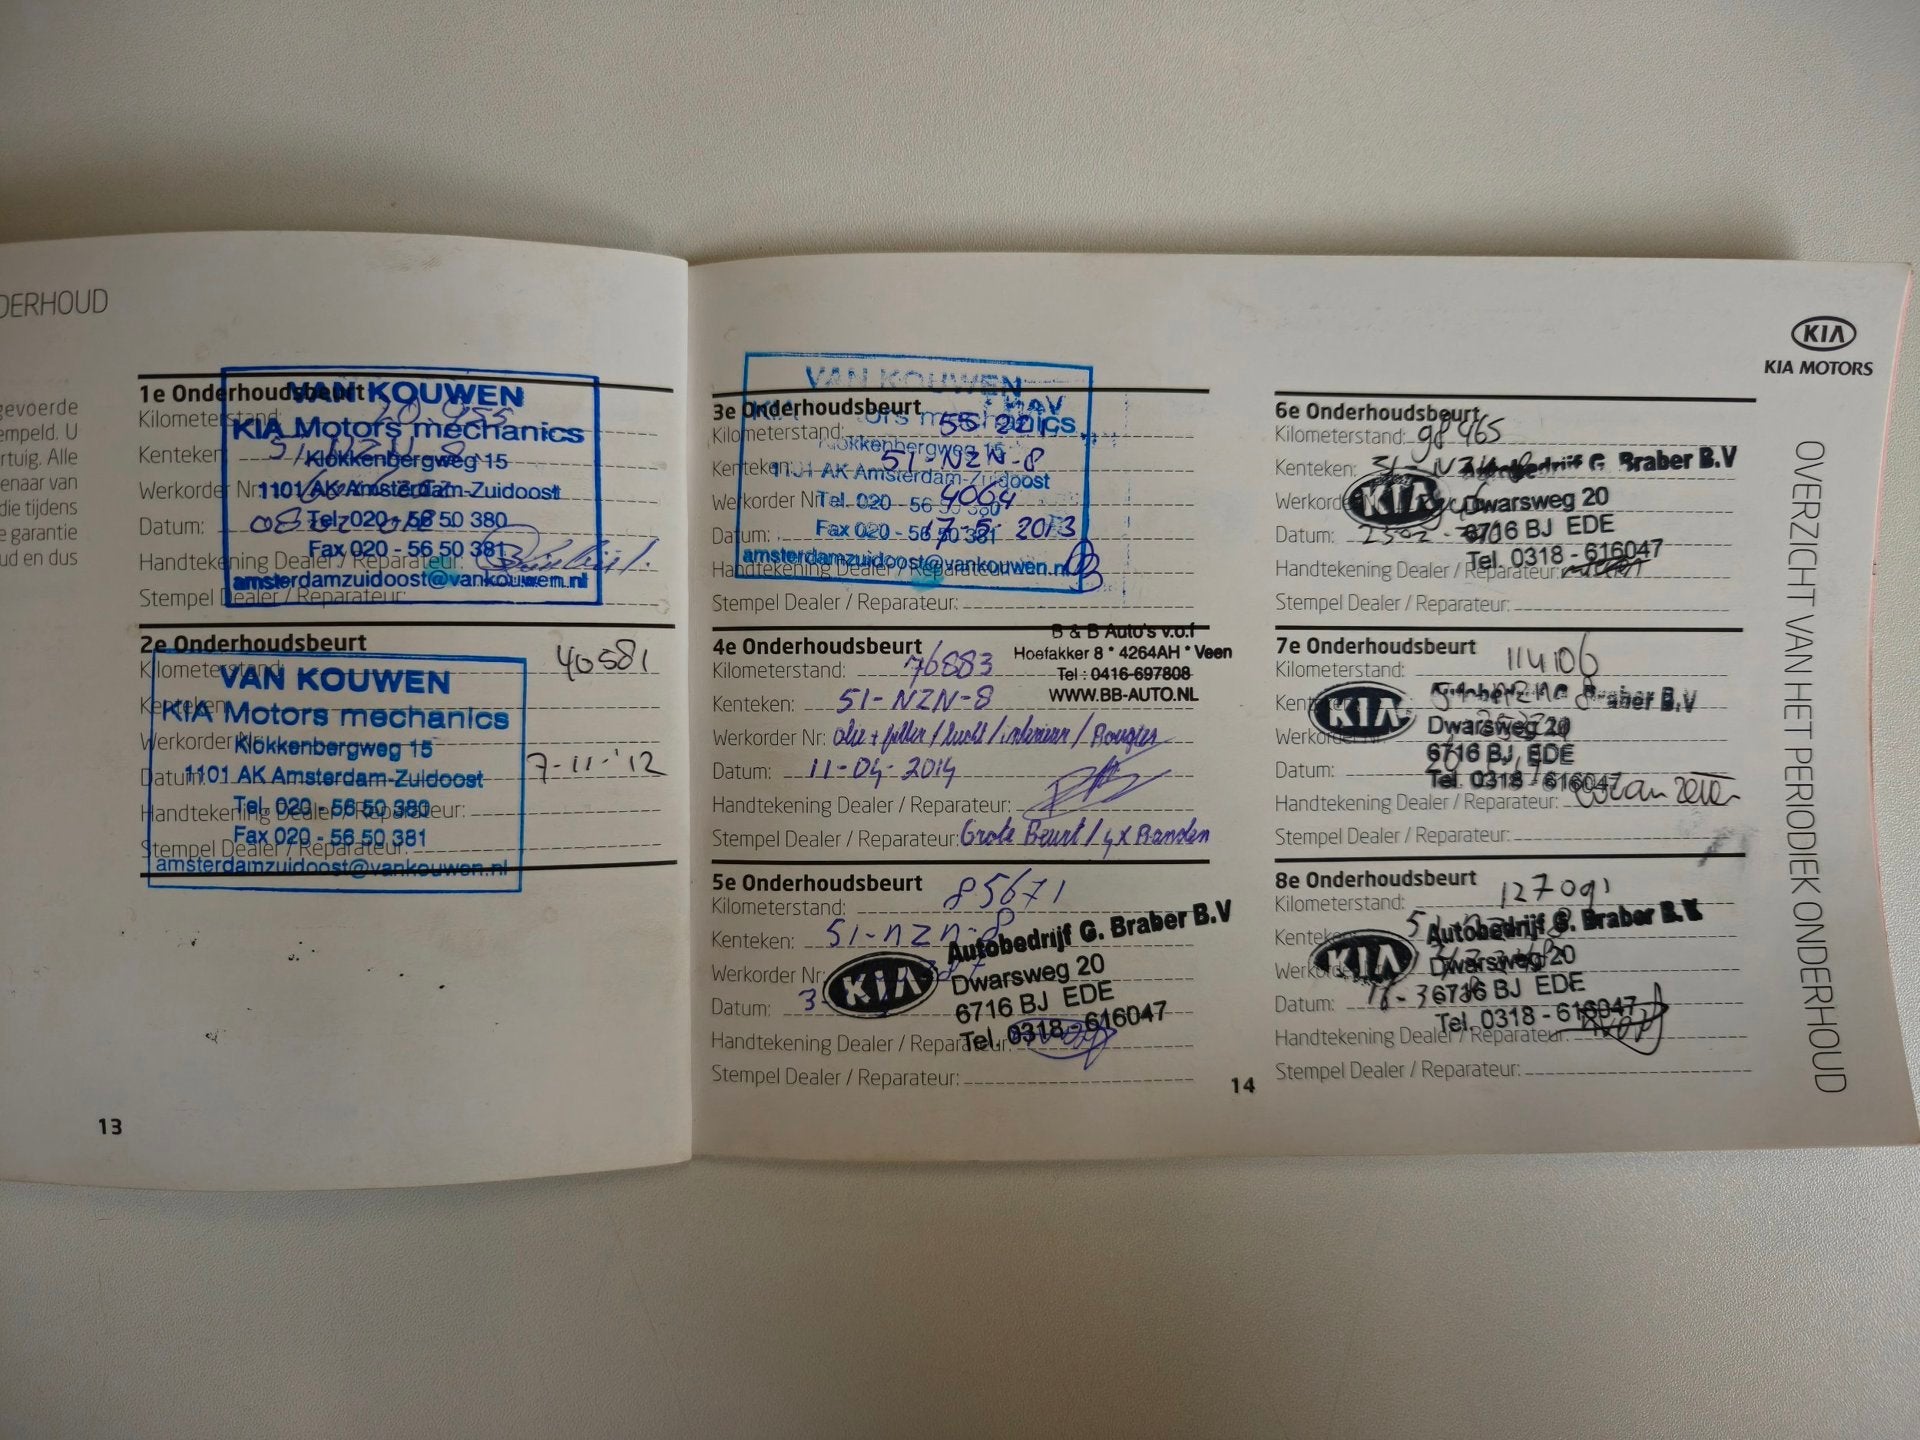 DERHOUD
gevoerde
empeld. U
rtuig. Alle
enaar van
die tijdens
e garantie
ud en dus
1e Onderhoudsbeurt
Kilometerstand:
Kenteken:
Werkorder Nr:
Datum:
Handtekening Dealer / Reparateur:
Stempel Dealer / Reparateur:
VAN KOUWEN
KIA Motors mechanics
Klokkenbergweg 15
1101 AK Amsterdam-Zuidoost
Tel. 020 - 56 50 380
Fax 020 - 56 50 381
amsterdamzuidoost@vankouwen.nl
2e Onderhoudsbeurt
Kilometerstand: 40581
Kenteken:
Werkorder Nr:
Datum: 7-11-'12
Handtekening Dealer / Reparateur:
Stempel Dealer / Reparateur:
VAN KOUWEN
KIA Motors mechanics
Klokkenbergweg 15
1101 AK Amsterdam-Zuidoost
Tel. 020 - 56 50 380
Fax 020 - 56 50 381
amsterdamzuidoost@vankouwen.nl
13
3e Onderhoudsbeurt
Kilometerstand:
Kenteken: 51-NZN-8
Werkorder Nr: 4064
Datum: 17-5-2013
Handtekening Dealer / Reparateur:
Stempel Dealer / Reparateur:
VAN KOUWEN
KIA Motors mechanics
Klokkenbergweg 15
1101 AK Amsterdam-Zuidoost
Tel. 020 - 56 50 380
Fax 020 - 56 50 381
amsterdamzuidoost@vankouwen.nl
4e Onderhoudsbeurt
Kilometerstand: 76883
Kenteken: 51-NZN-8
Werkorder Nr: olie + filter / lucht / interieur / Bougies
Datum: 11-04-2014
Handtekening Dealer / Reparateur:
Stempel Dealer / Reparateur: Grote Beurt / 4x Banden
B & B Auto's v.o.f
Hoefakker 8 * 4264AH * Veen
Tel : 0416-697808
WWW.BB-AUTO.NL
5e Onderhoudsbeurt
Kilometerstand: 85671
Kenteken: 51-NZN-8
Werkorder Nr:
Datum:
Handtekening Dealer / Reparateur:
Stempel Dealer / Reparateur:
KIA
Autobedrijf G. Braber B.V
Dwarsweg 20
6716 BJ EDE
Tel. 0318 - 616047
14
6e Onderhoudsbeurt
Kilometerstand: 98465
Kenteken:
Werkorder
Datum:
Handtekening Dealer / Reparateur:
Stempel Dealer / Reparateur:
KIA
Autobedrijf G. Braber B.V
Dwarsweg 20
6716 BJ EDE
Tel. 0318 - 616047
7e Onderhoudsbeurt
Kilometerstand: 114106
Kenteken:
Werkorder Nr:
Datum:
Handtekening Dealer / Reparateur:
Stempel Dealer / Reparateur:
KIA
Braber B.V
Dwarsweg 20
6716 BJ EDE
Tel. 0318 - 616047
8e Onderhoudsbeurt
Kilometerstand: 127091
Kenteken:
Werkorder
Datum:
Handtekening Dealer / Reparateur:
Stempel Dealer / Reparateur:
KIA
Autobedrijf G. Braber B.V
Dwarsweg 20
6716 BJ EDE
Tel. 0318 - 616047
KIA
KIA MOTORS
OVERZICHT VAN HET PERIODIEK ONDERHOUD